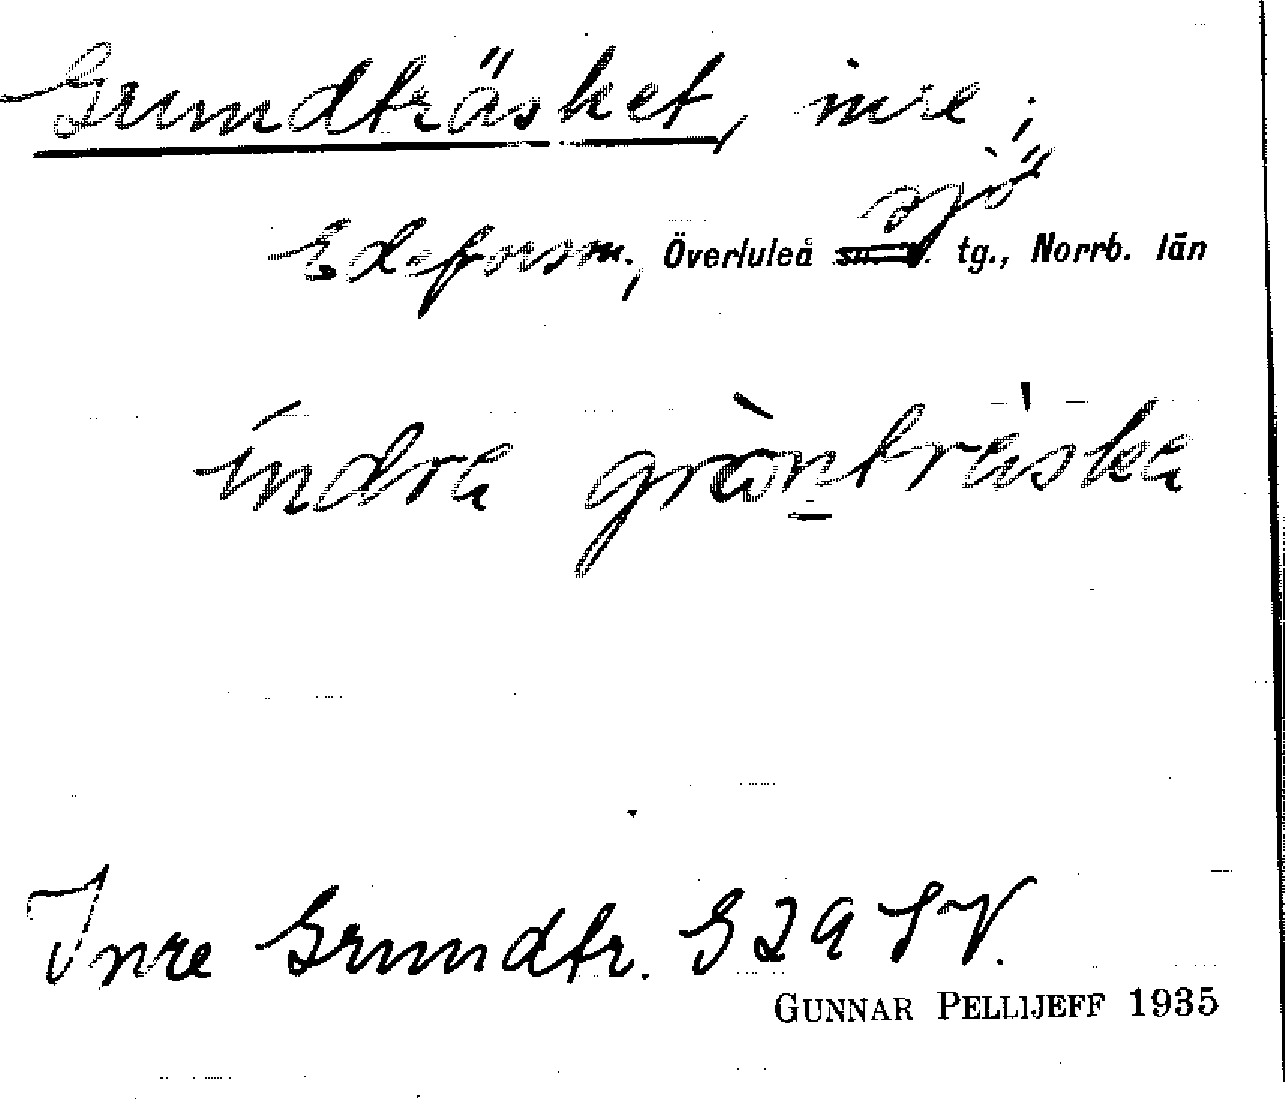 Grundträsket, inre;
sjö
Edefors sn., Överluleå sn. tg., Norrb. län
índra gròntrèska
Inre Grundtr. G29 SV.
GUNNAR PELLIJEFF 1935